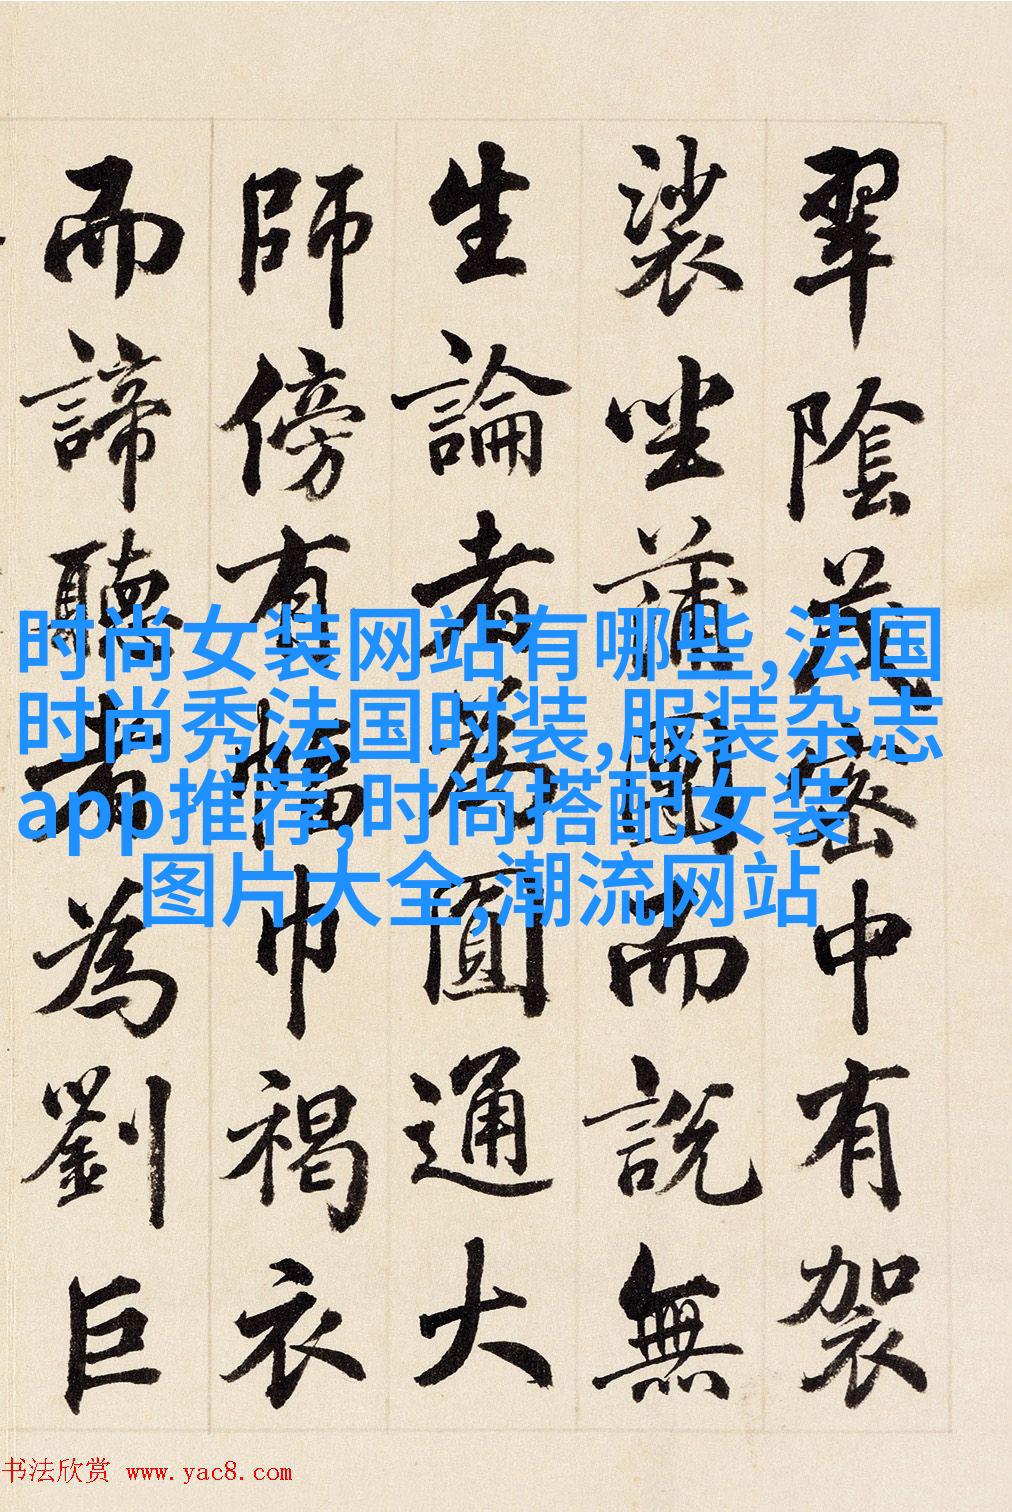 翠陰茂密中有袈
裟坐蒲團而說無
生論者為圓通大
師傍有幅巾褐衣
而諦聽者為劉巨
时尚女装网站有哪些,法国
时尚秀法国时装,服装杂志
app推荐,时尚搭配女装
图片大全,潮流网站
书法欣赏 www.yac8.com